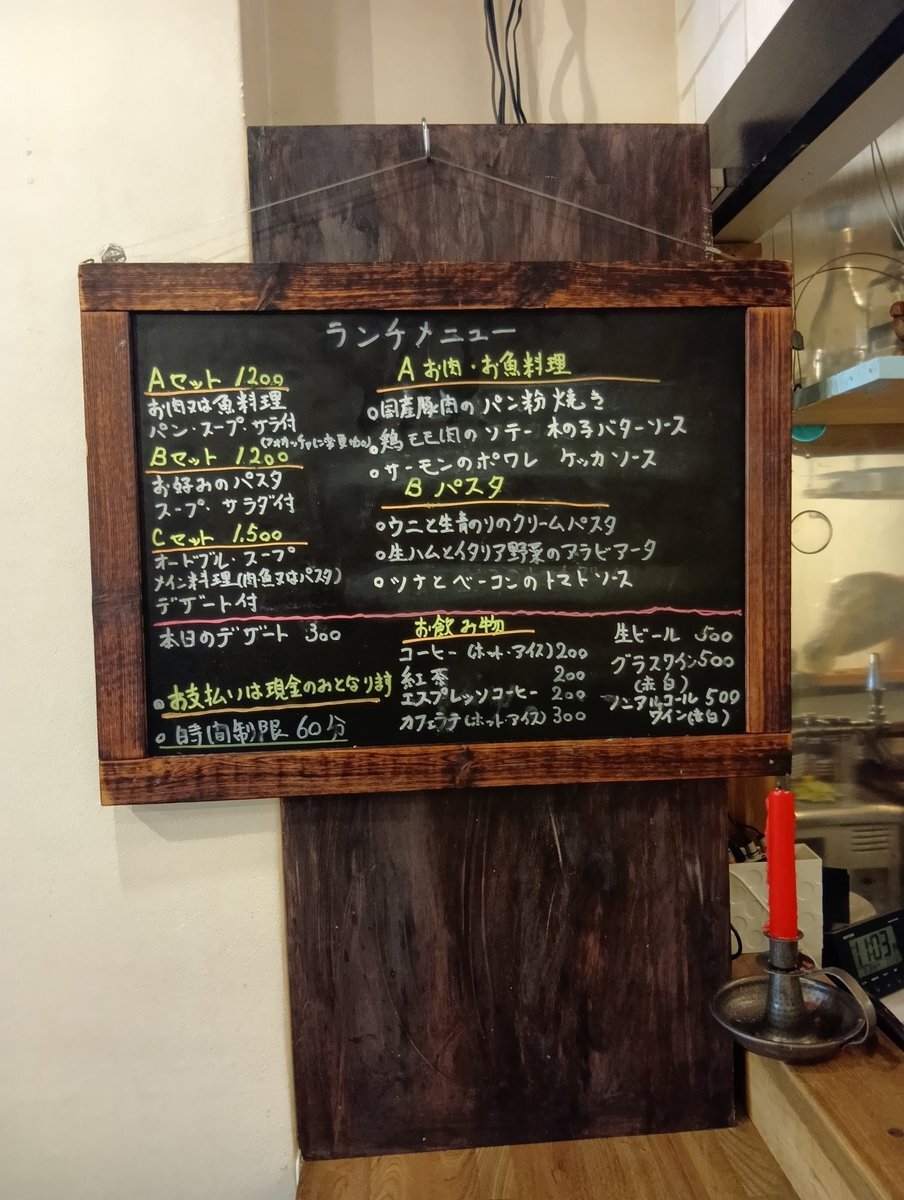 ランチメニュー
Aセット 1200
お肉又は魚料理
パン・スープ・サラ付
Bセット 1200
お好みのパスタ
スープ・サラダ付
Cセット 1.500
オードブル・スープ
メイン料理(肉魚又はパスタ)
デザート付
A お肉・お魚料理
国産豚肉のパン粉焼き
鶏モモ肉のソテー 木の子バターソース
サーモンのポワレ ケッカソース
B パスタ
ウニと生青のりのクリームパスタ
生ハムとイタリア野菜のアラビアータ
ツナとベーコンのトマトソース
本日のデザート 300
お支払いは現金のみとなります
時間制限 60分
お飲み物
コーヒー(ホット・アイス)200
紅茶 200
エスプレッソコーヒー 200
カフェラテ(ホット・アイス) 300
生ビール 500
グラスワイン 500
(赤白)
ノンアルコール 500
ワイン(赤白)
11:03